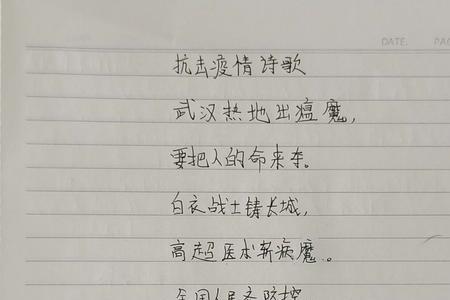 DATE.
抗击疫情诗歌
武汉热地出瘟魔,
要把人的命来夺。
白衣战士铸长城,
高超医术斩病魔。
全国人民齐防控